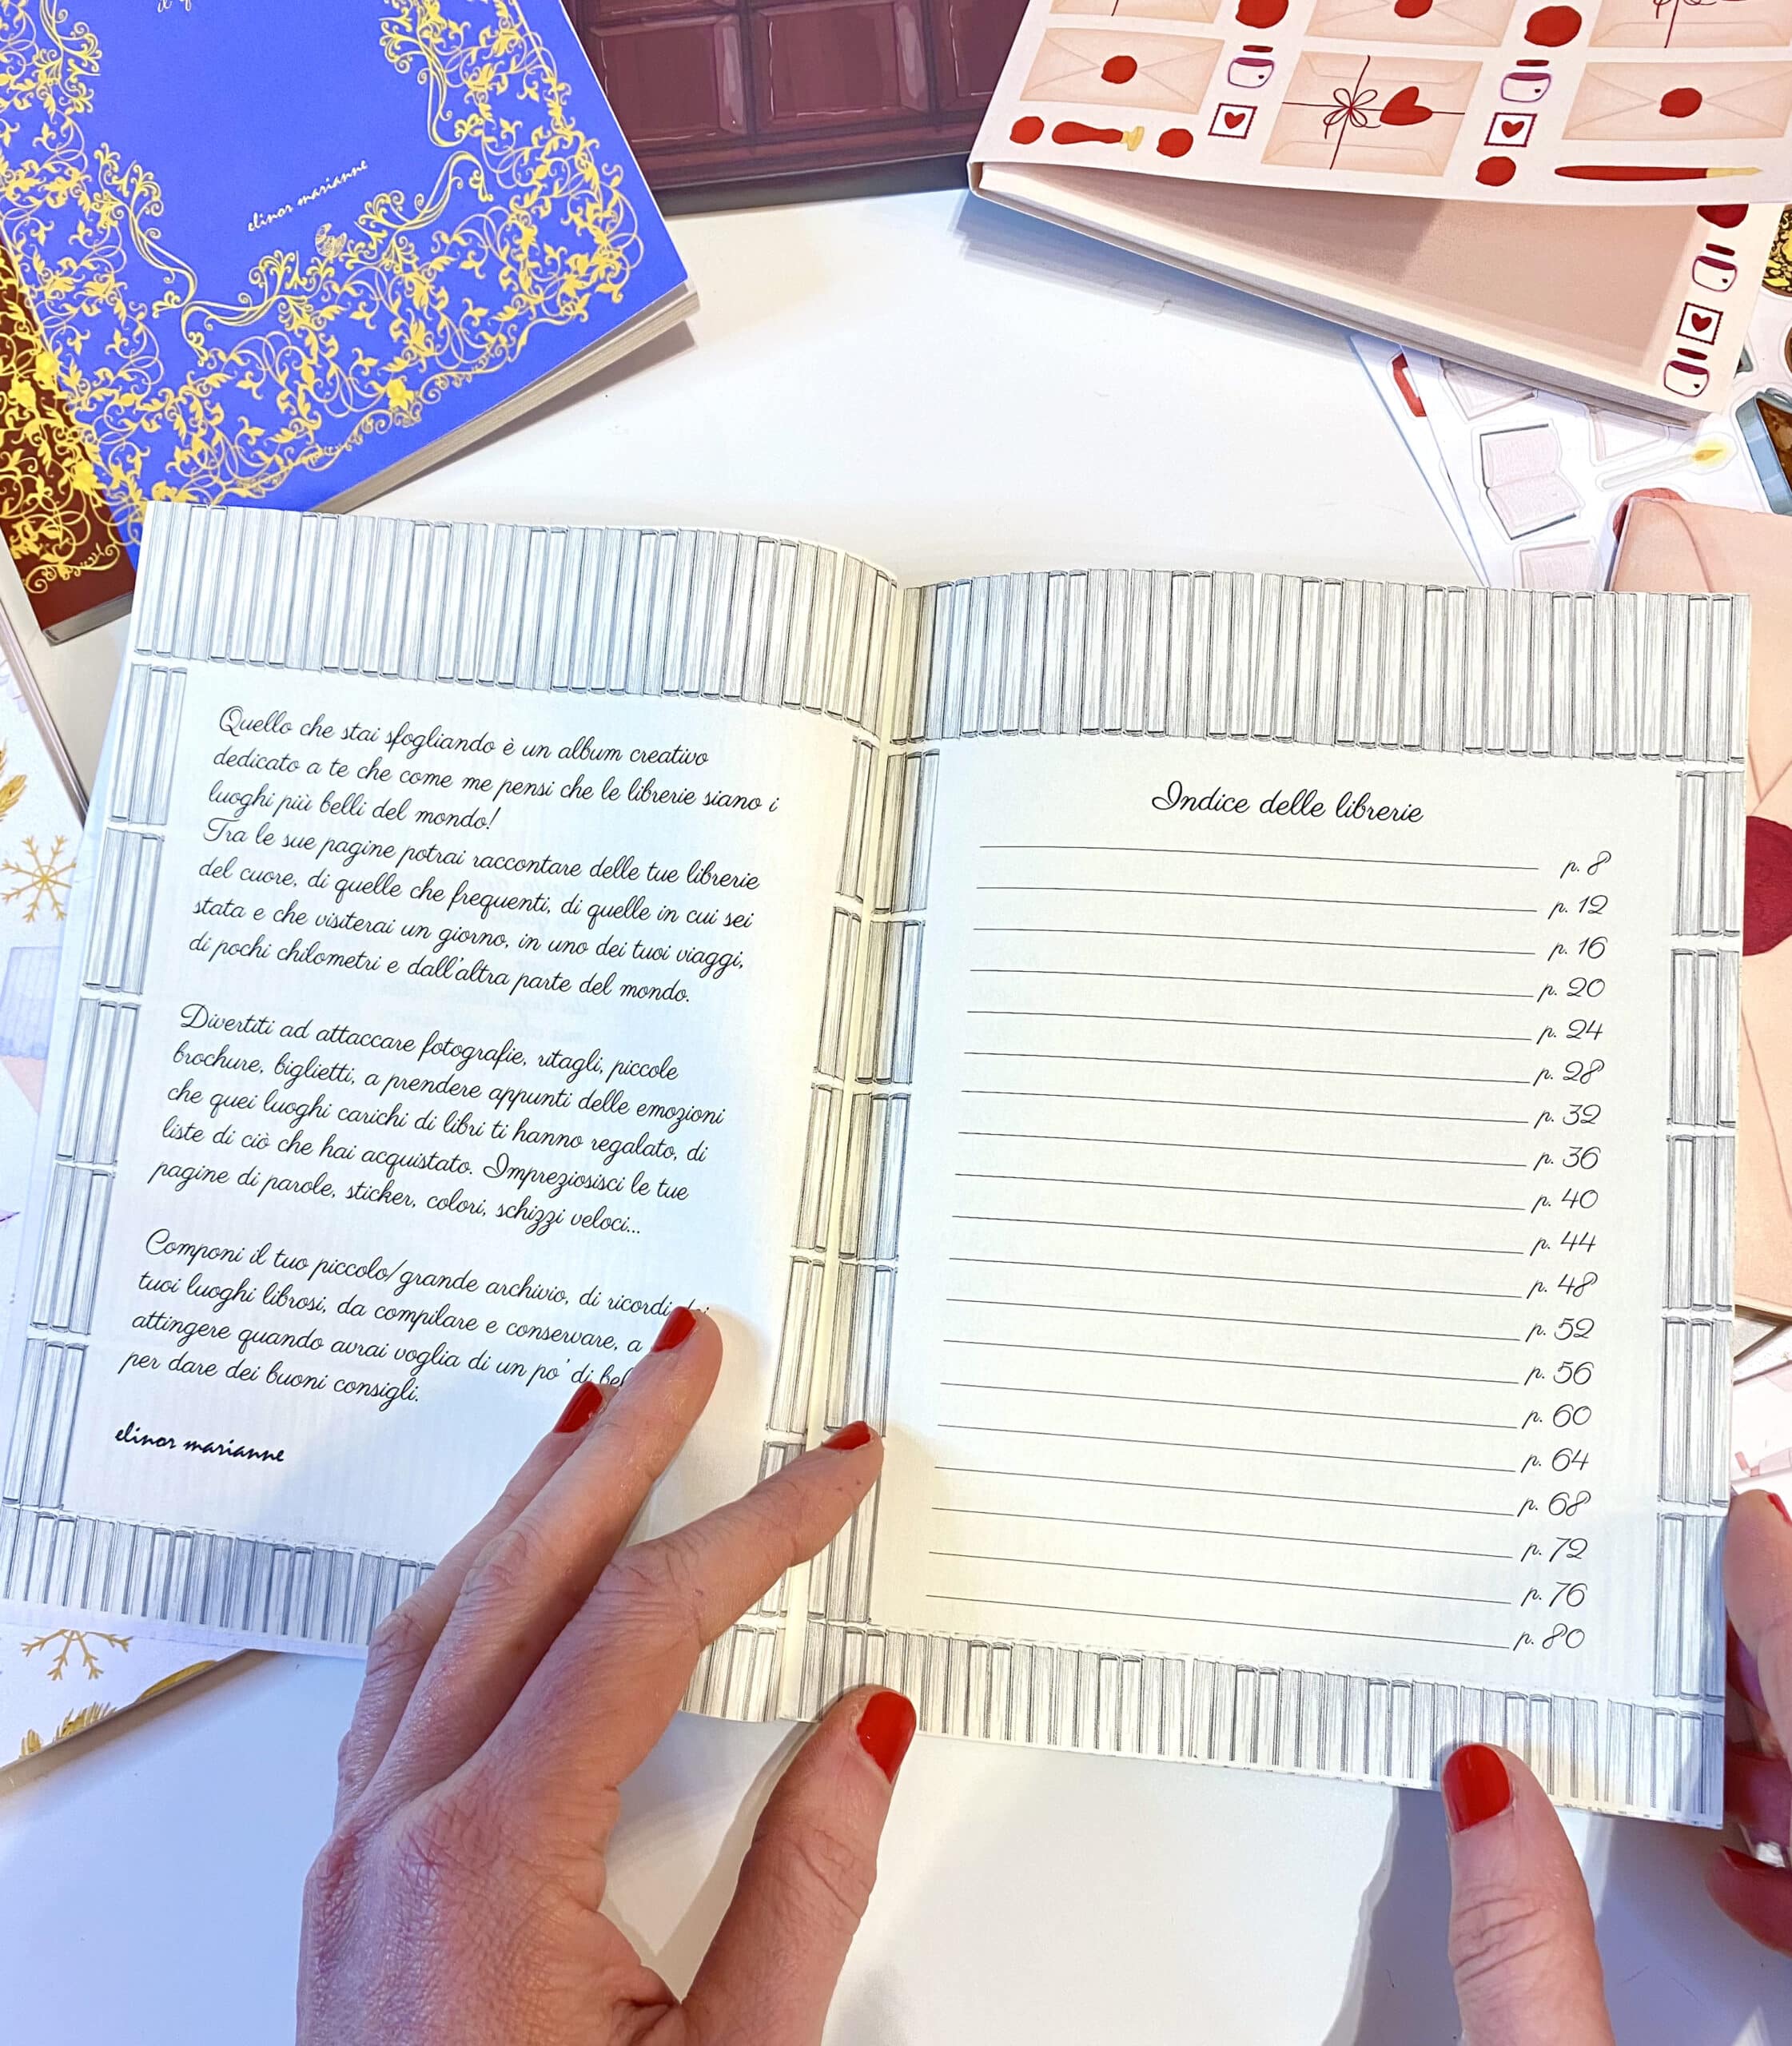 elinor marianne
Quello che stai sfogliando è un album creativo
dedicato a te che come me pensi che le librerie siano i
luoghi più belli del mondo!
Tra le sue pagine potrai raccontare delle tue librerie
del cuore, di quelle che frequenti, di quelle in cui sei
stata e che visiterai un giorno, in uno dei tuoi viaggi,
di pochi chilometri e dall'altra parte del mondo.
Divertiti ad attaccare fotografie, ritagli, piccole
brochure, biglietti, a prendere appunti delle emozioni
che quei luoghi carichi di libri ti hanno regalato, di
liste di ciò che hai acquistato. Impreziosisci le tue
pagine di parole, sticker, colori, schizzi veloci...
Componi il tuo piccolo/grande archivio, di ricordi dei
tuoi luoghi librosi, da compilare e conservare, a
attingere quando avrai voglia di un po' di
per dare dei buoni consigli.
elinor marianne
Indice delle librerie
p. 8
p. 12
p. 16
p. 20
p. 24
p. 28
p. 32
p. 36
p. 40
p. 44
p. 48
p. 52
p. 56
p. 60
p. 64
p. 68
p. 72
p. 76
p. 80